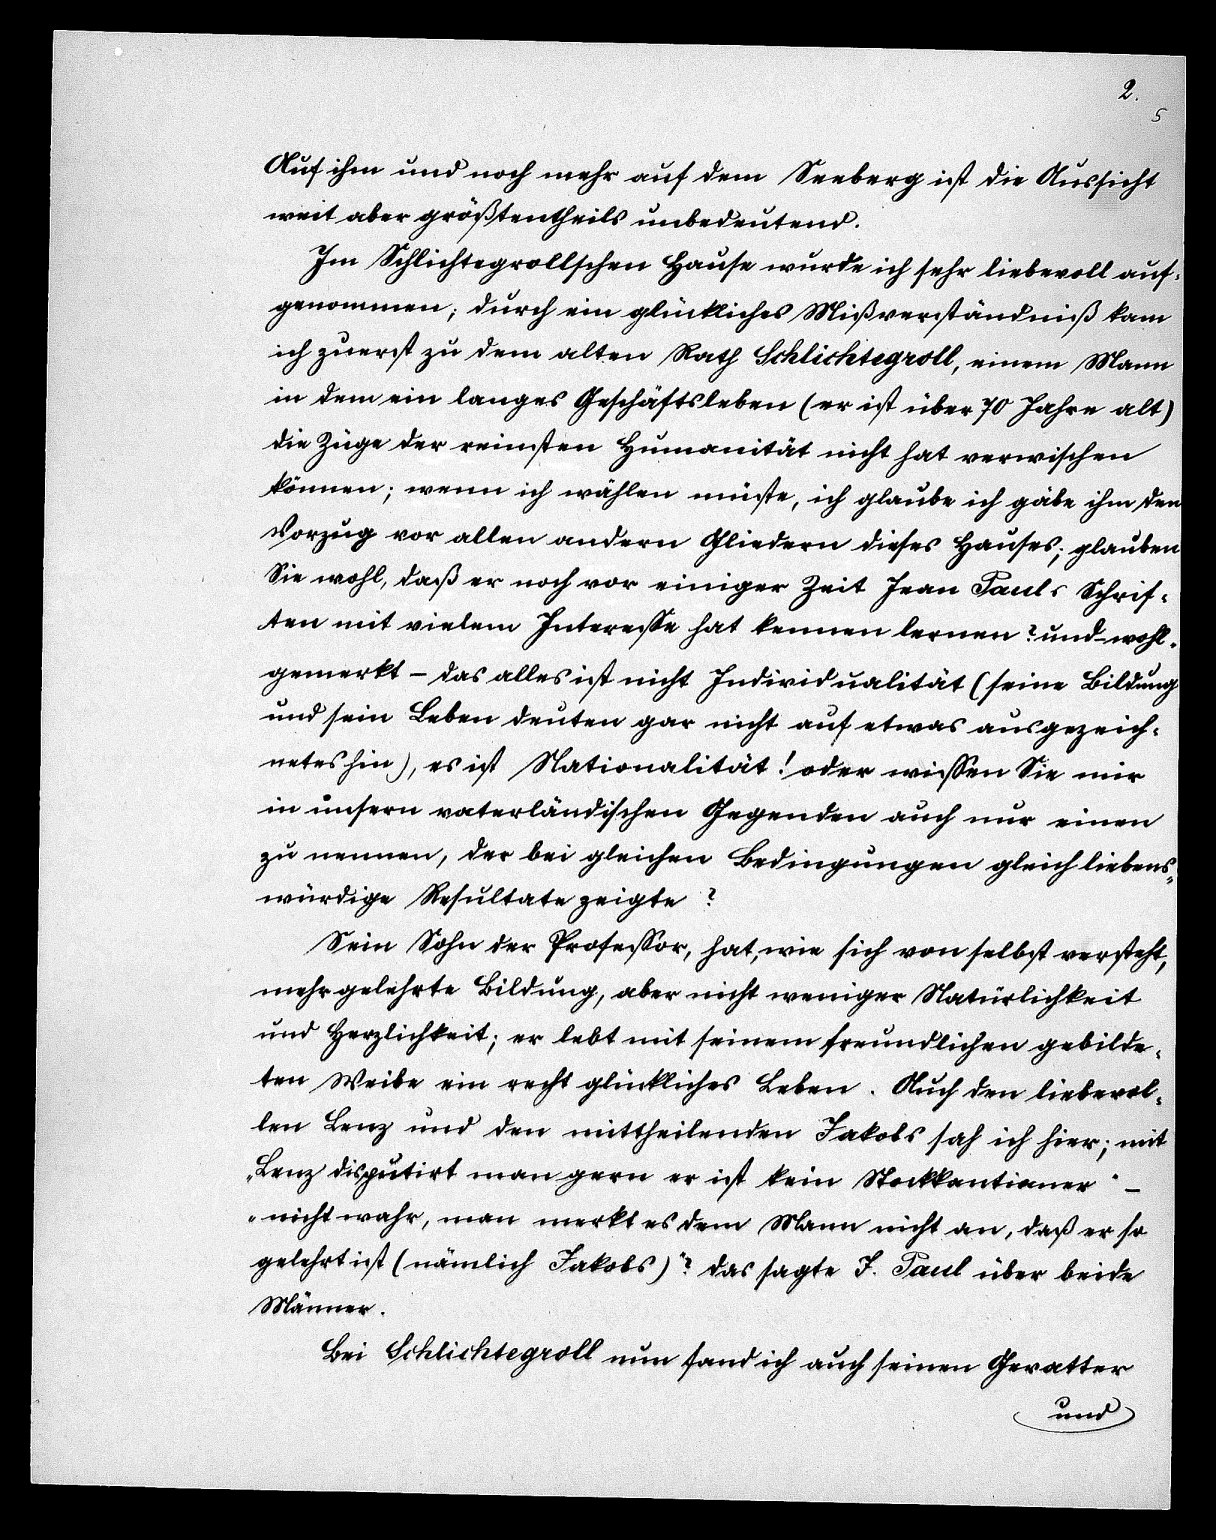 2.
5
Auf ihm und noch mehr auf dem Seeberg ist die Aussicht
weit aber größtentheils unbedeutend.
Im Schlichtegrollschen Hause wurde ich sehr liebevoll auf-
genommen; durch ein glückliches Mißverständniß kam
ich zuerst zu dem alten Rath Schlichtegroll, einem Mann
in dem ein langes Geschäftsleben (er ist über 70 Jahre alt)
die Züge der reinsten Humanität nicht hat verwischen
können; wenn ich wählen müste, ich glaube ich gäbe ihm den
Vorzug vor allen andern Gliedern dieses Hauses; glauben
Sie wohl, daß er noch vor einiger Zeit Jean Pauls Schrif-
ten mit vielem Interesse hat kennen lernen? und wohl-
gemerkt – das alles ist nicht Individualität (seine Bildung
und sein Leben deuten gar nicht auf etwas ausgezeich-
netes hin), es ist Nationalität! oder wissen Sie mir
in unsern vaterländischen Gegenden auch nur einen
zu nennen, der bei gleichen Bedingungen gleich liebens-
würdige Resultate zeigte?
Sein Sohn der Professor, hat, wie sich von selbst versteht,
mehr gelehrte Bildung, aber nicht weniger Natürlichkeit
und Herzlichkeit; er lebt mit seinem freundlichen gebilde-
ten Weibe ein recht glückliches Leben. Auch den liebevol-
len Lenz und den mittheilenden Jakobs sah ich hier; mit
„Lenz disputirt man gern er ist kein Stockkantianer“ –
„nicht wahr, man merkt es dem Mann nicht an, daß er so
gelehrt ist (nämlich Jakobs)“? das sagte J. Paul über beide
Männer.
Bei Schlichtegroll nun fand ich auch seinen Gevatter
und